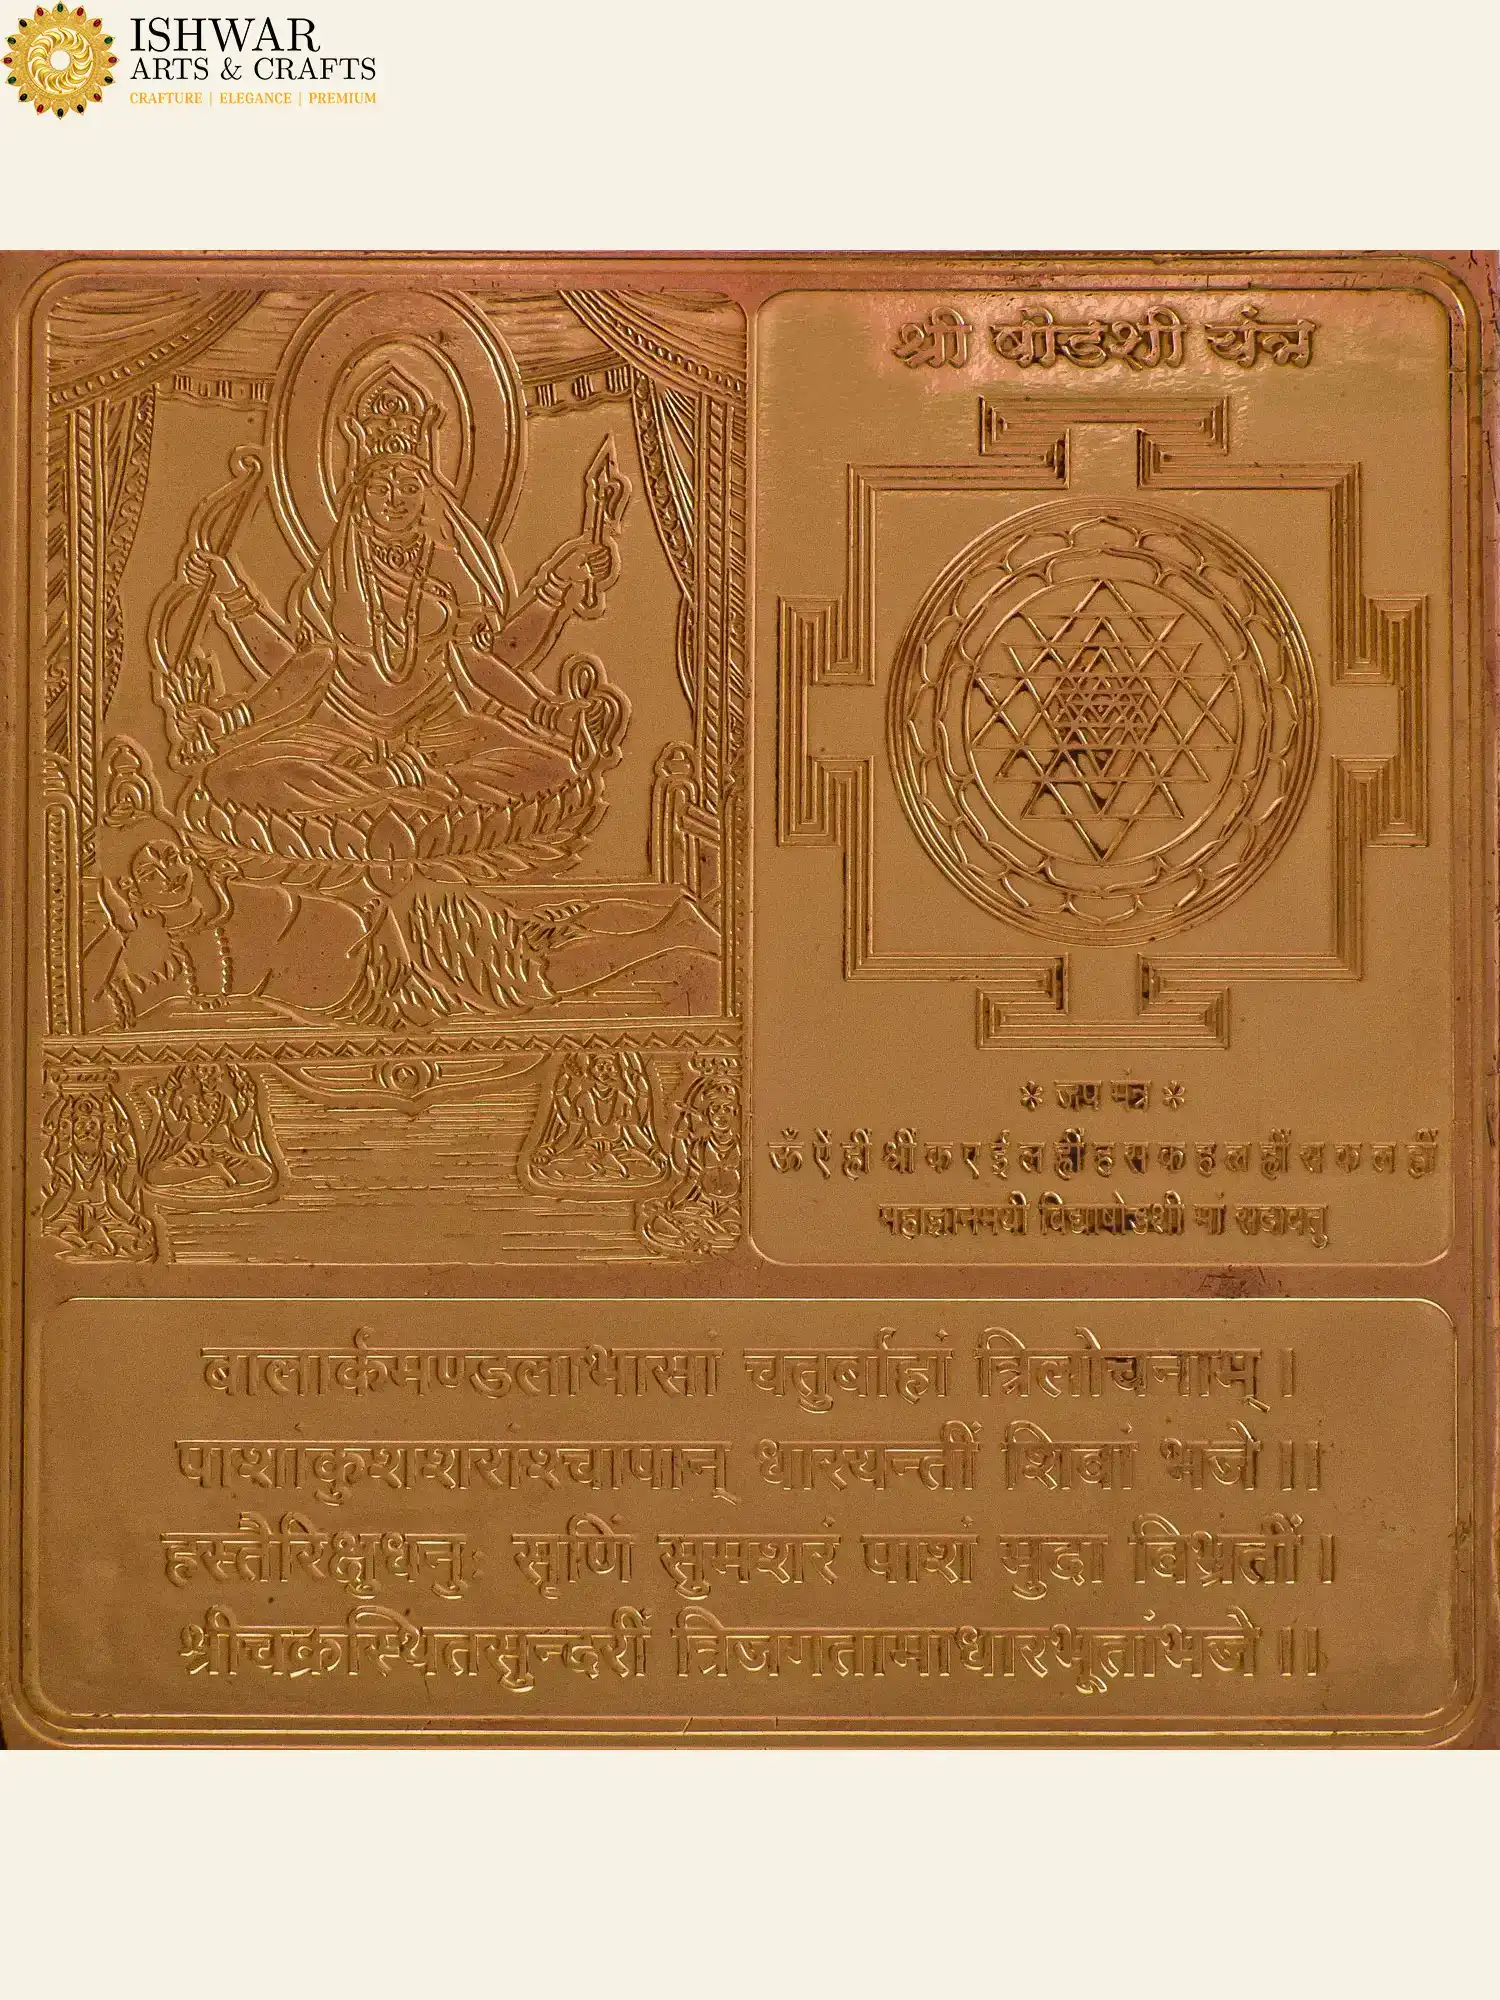 ISHWAR
ARTS & CRAFTS
CRAFTURE | ELEGANCE | PREMIUM
श्री षोडशी यंत्र
* जप मंत्र *
ॐ ऐं ह्रीं श्रीं क ए ई ल ह्रीं ह स क ह ल ह्रीं स क ल ह्रीं
महाज्ञानमयी विद्याषोडशी मां सदावतु
बालार्कमण्डलाभासां चतुर्बाहां त्रिलोचनाम् ।
पाशांकुशशरांश्चापान् धारयन्तीं शिवां भजे ।।
हस्तैरिक्षुधनुः सृणिं सुमशरं पाशं मुदा बिभ्रतीं ।
श्रीचक्रस्थितसुन्दरीं त्रिजगतामाधारभूतांभजे ।।